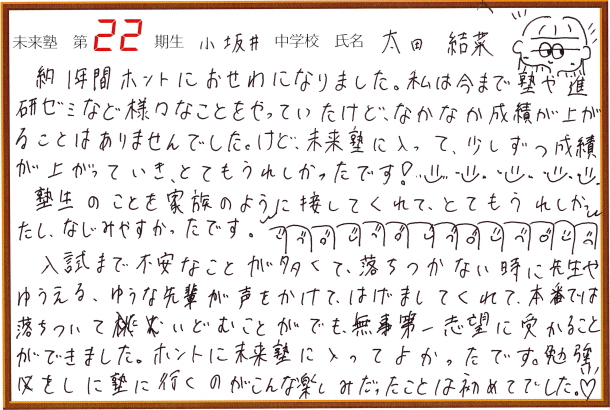 未来塾 第22期生 小坂井 中学校 氏名 太田 結菜
約1年間ホントにおせわになりました。私は今まで塾や進
研ゼミなど様々なことをやっていたけど、なかなか成績が上が
ることはありませんでした。けど、未来塾に入って、少しずつ成績
が上がっていき、とてもうれしかったです!
塾生のことを家族のように接してくれて、とてもうれしか
たし、なじみやすかったです。
入試まで不安なことが多くて、落ちつかない時に先生や
ゆうえる、ゆうな先輩が声をかけて、はげましてくれて、本番では
落ちついていどむことができ、無事第一志望に受かること
ができました。ホントに未来塾に入ってよかったです。勉強
をしに塾に行くのがこんな楽しみだったことは初めてでした。♡